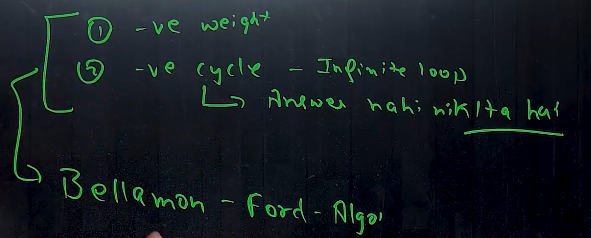 ① -ve weight
② -ve cycle - Infinite loop
Answer nahi niklta hai
Bellamon - Ford - Algo